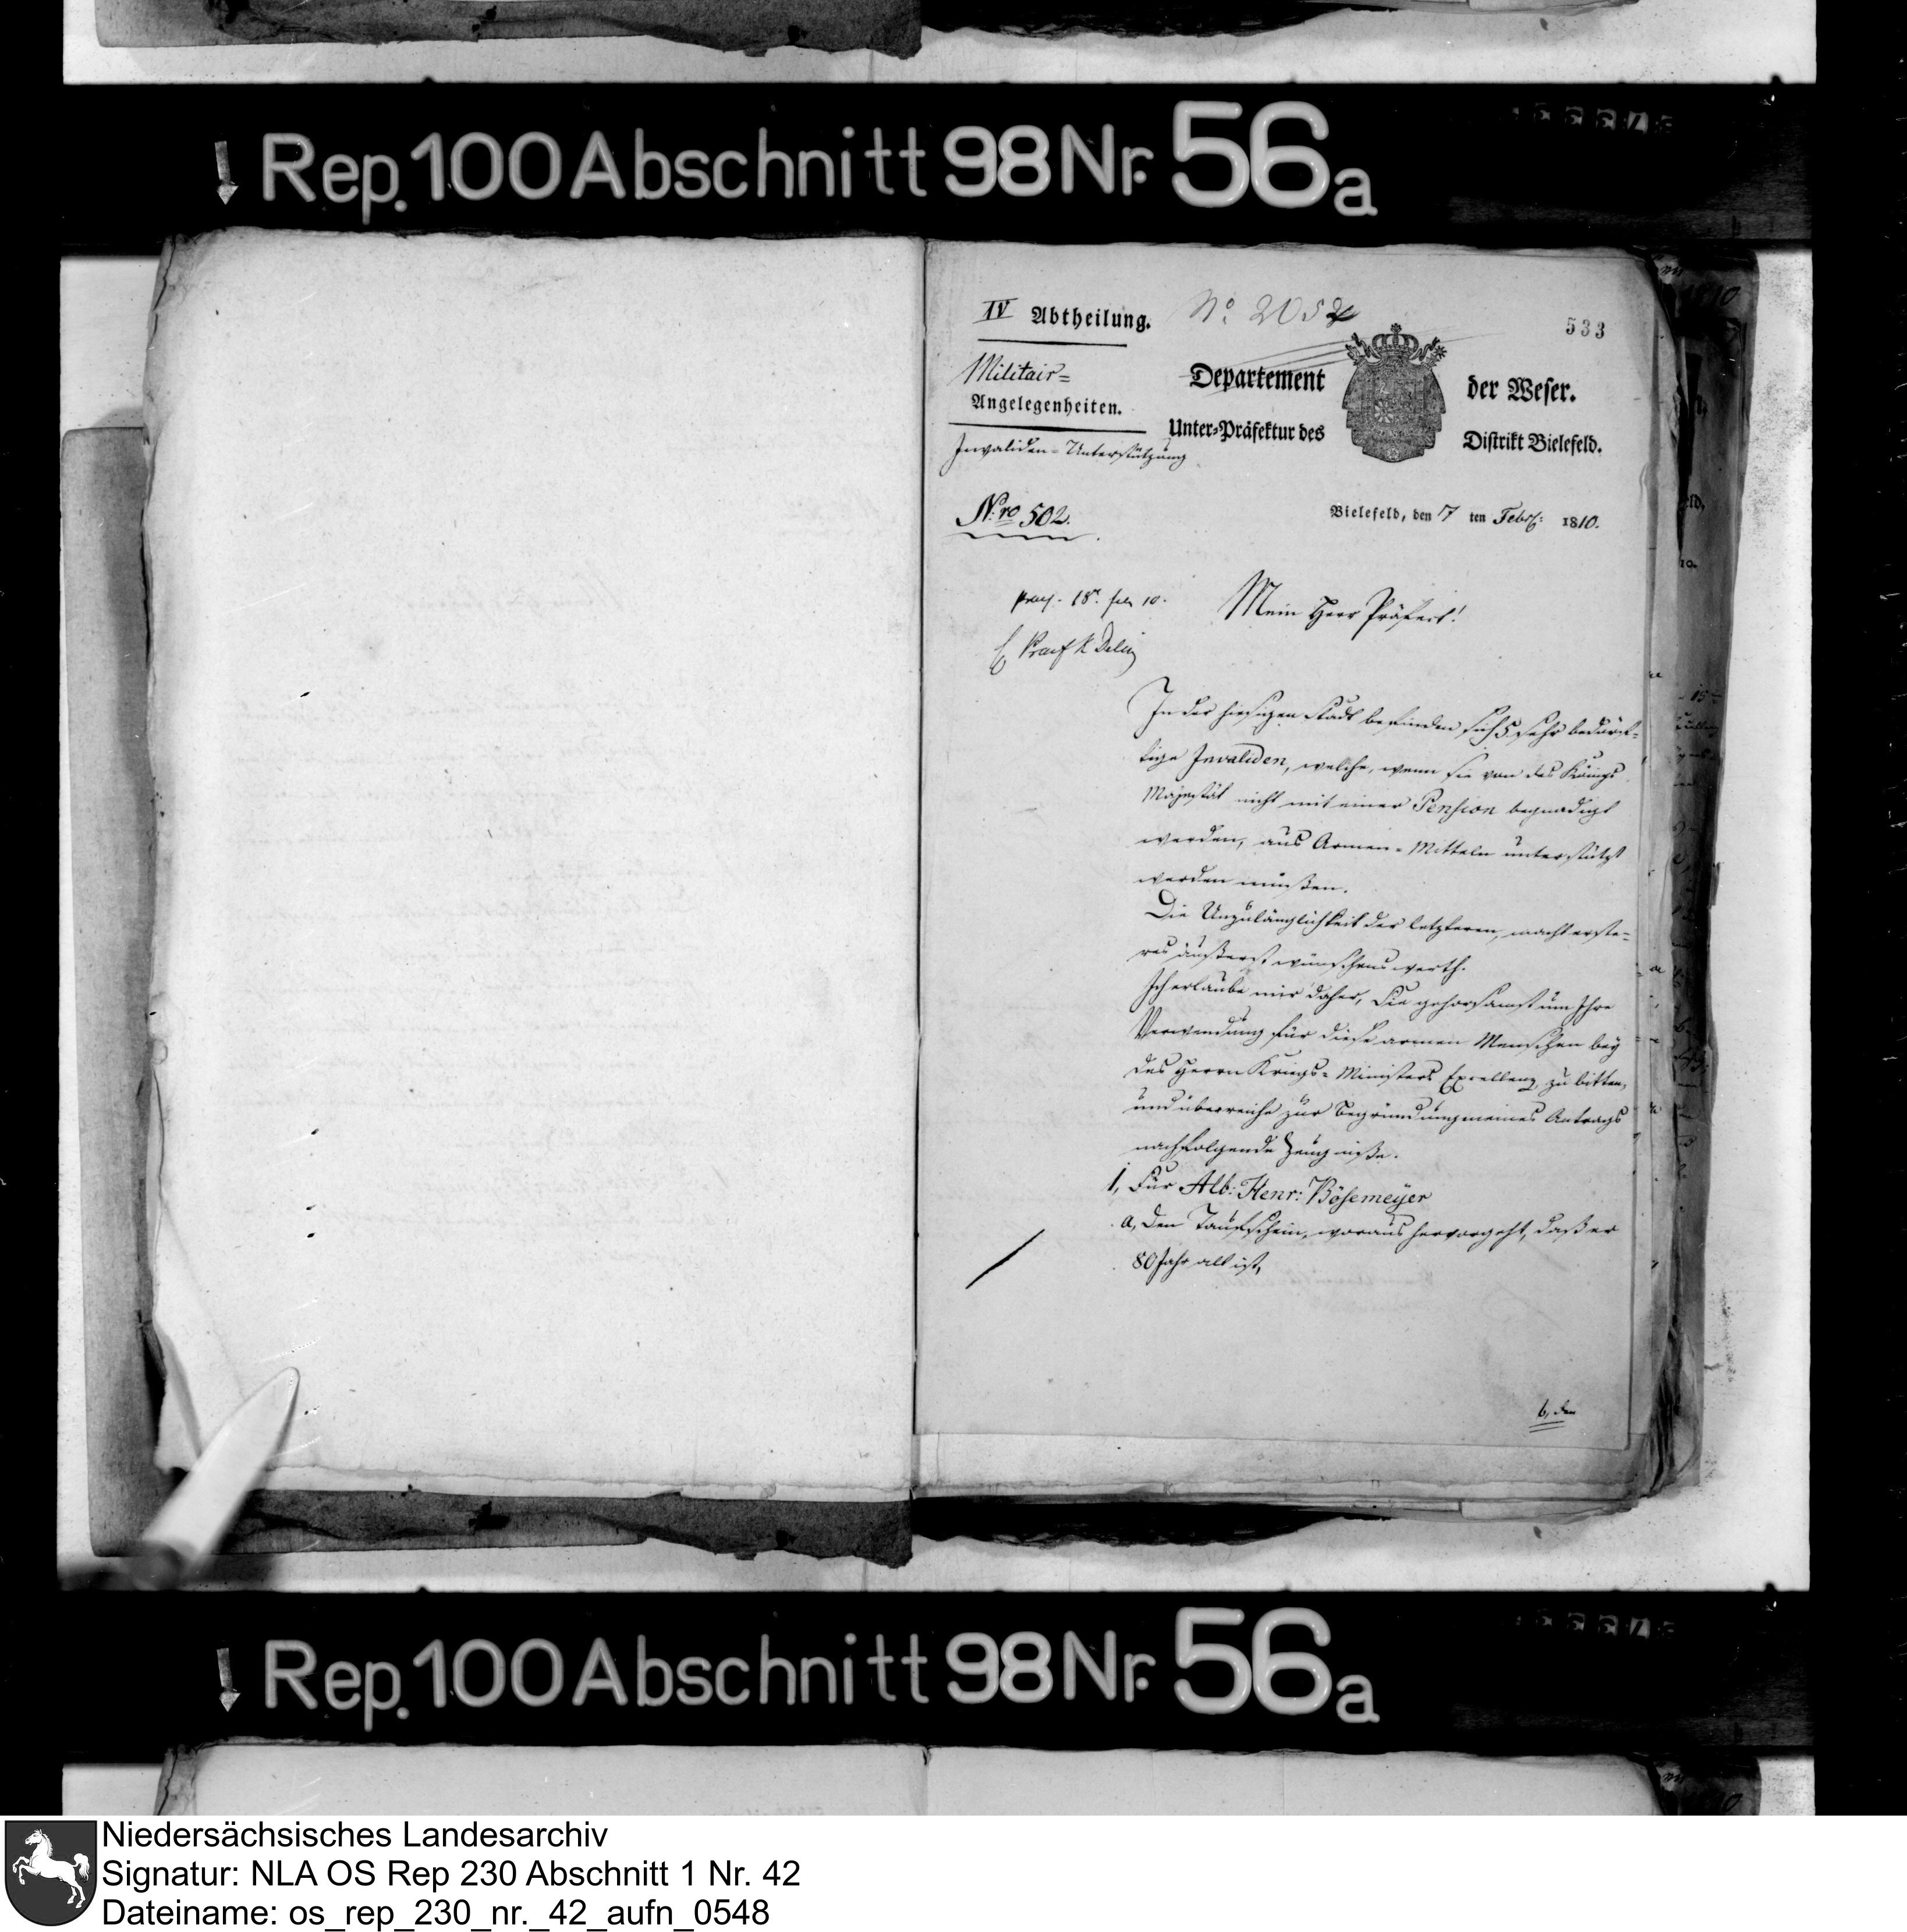 Rep. 100 Abschnitt 98 Nr. 56a
IV Abtheilung.
No 2052
533
Militair=
Angelegenheiten.
Departement der Weser.
Unter=Präfektur des Distrikt Bielefeld.
Invaliden=Unterstützung
Nro 502.
Bielefeld, den 7 ten Febr: 1810.
praes. 18t. feb 10.
Mein Herr Präfect!
In der hiesigen Stadt befinden sich 5 sehr bedürf=
tige Invaliden, welche, wenn sie von des Königs
Majestät nicht mit einer Pension begnadigt
werden, aus Armen=Mitteln unterstützt
werden müßen.
Die Unzulänglichkeit der letzteren, macht erste=
res äußerst wünschenswerth.
Ich erlaube mir daher, Sie gehorsamst um Ihre
Verwendung für diese armen Menschen bey
des Herrn Kriegs=Ministers Excellenz zu bitten,
und überreiche zur Begründung meines Antrags
nachfolgende Zeugniße.
1, Für Alb: Henr: Bösemeyer
a, den Taufschein, woraus hervorgeht, daß er
80 Jahr alt ist,
b, den
Rep. 100 Abschnitt 98 Nr. 56a
Niedersächsisches Landesarchiv
Signatur: NLA OS Rep 230 Abschnitt 1 Nr. 42
Dateiname: os_rep_230_nr._42_aufn_0548